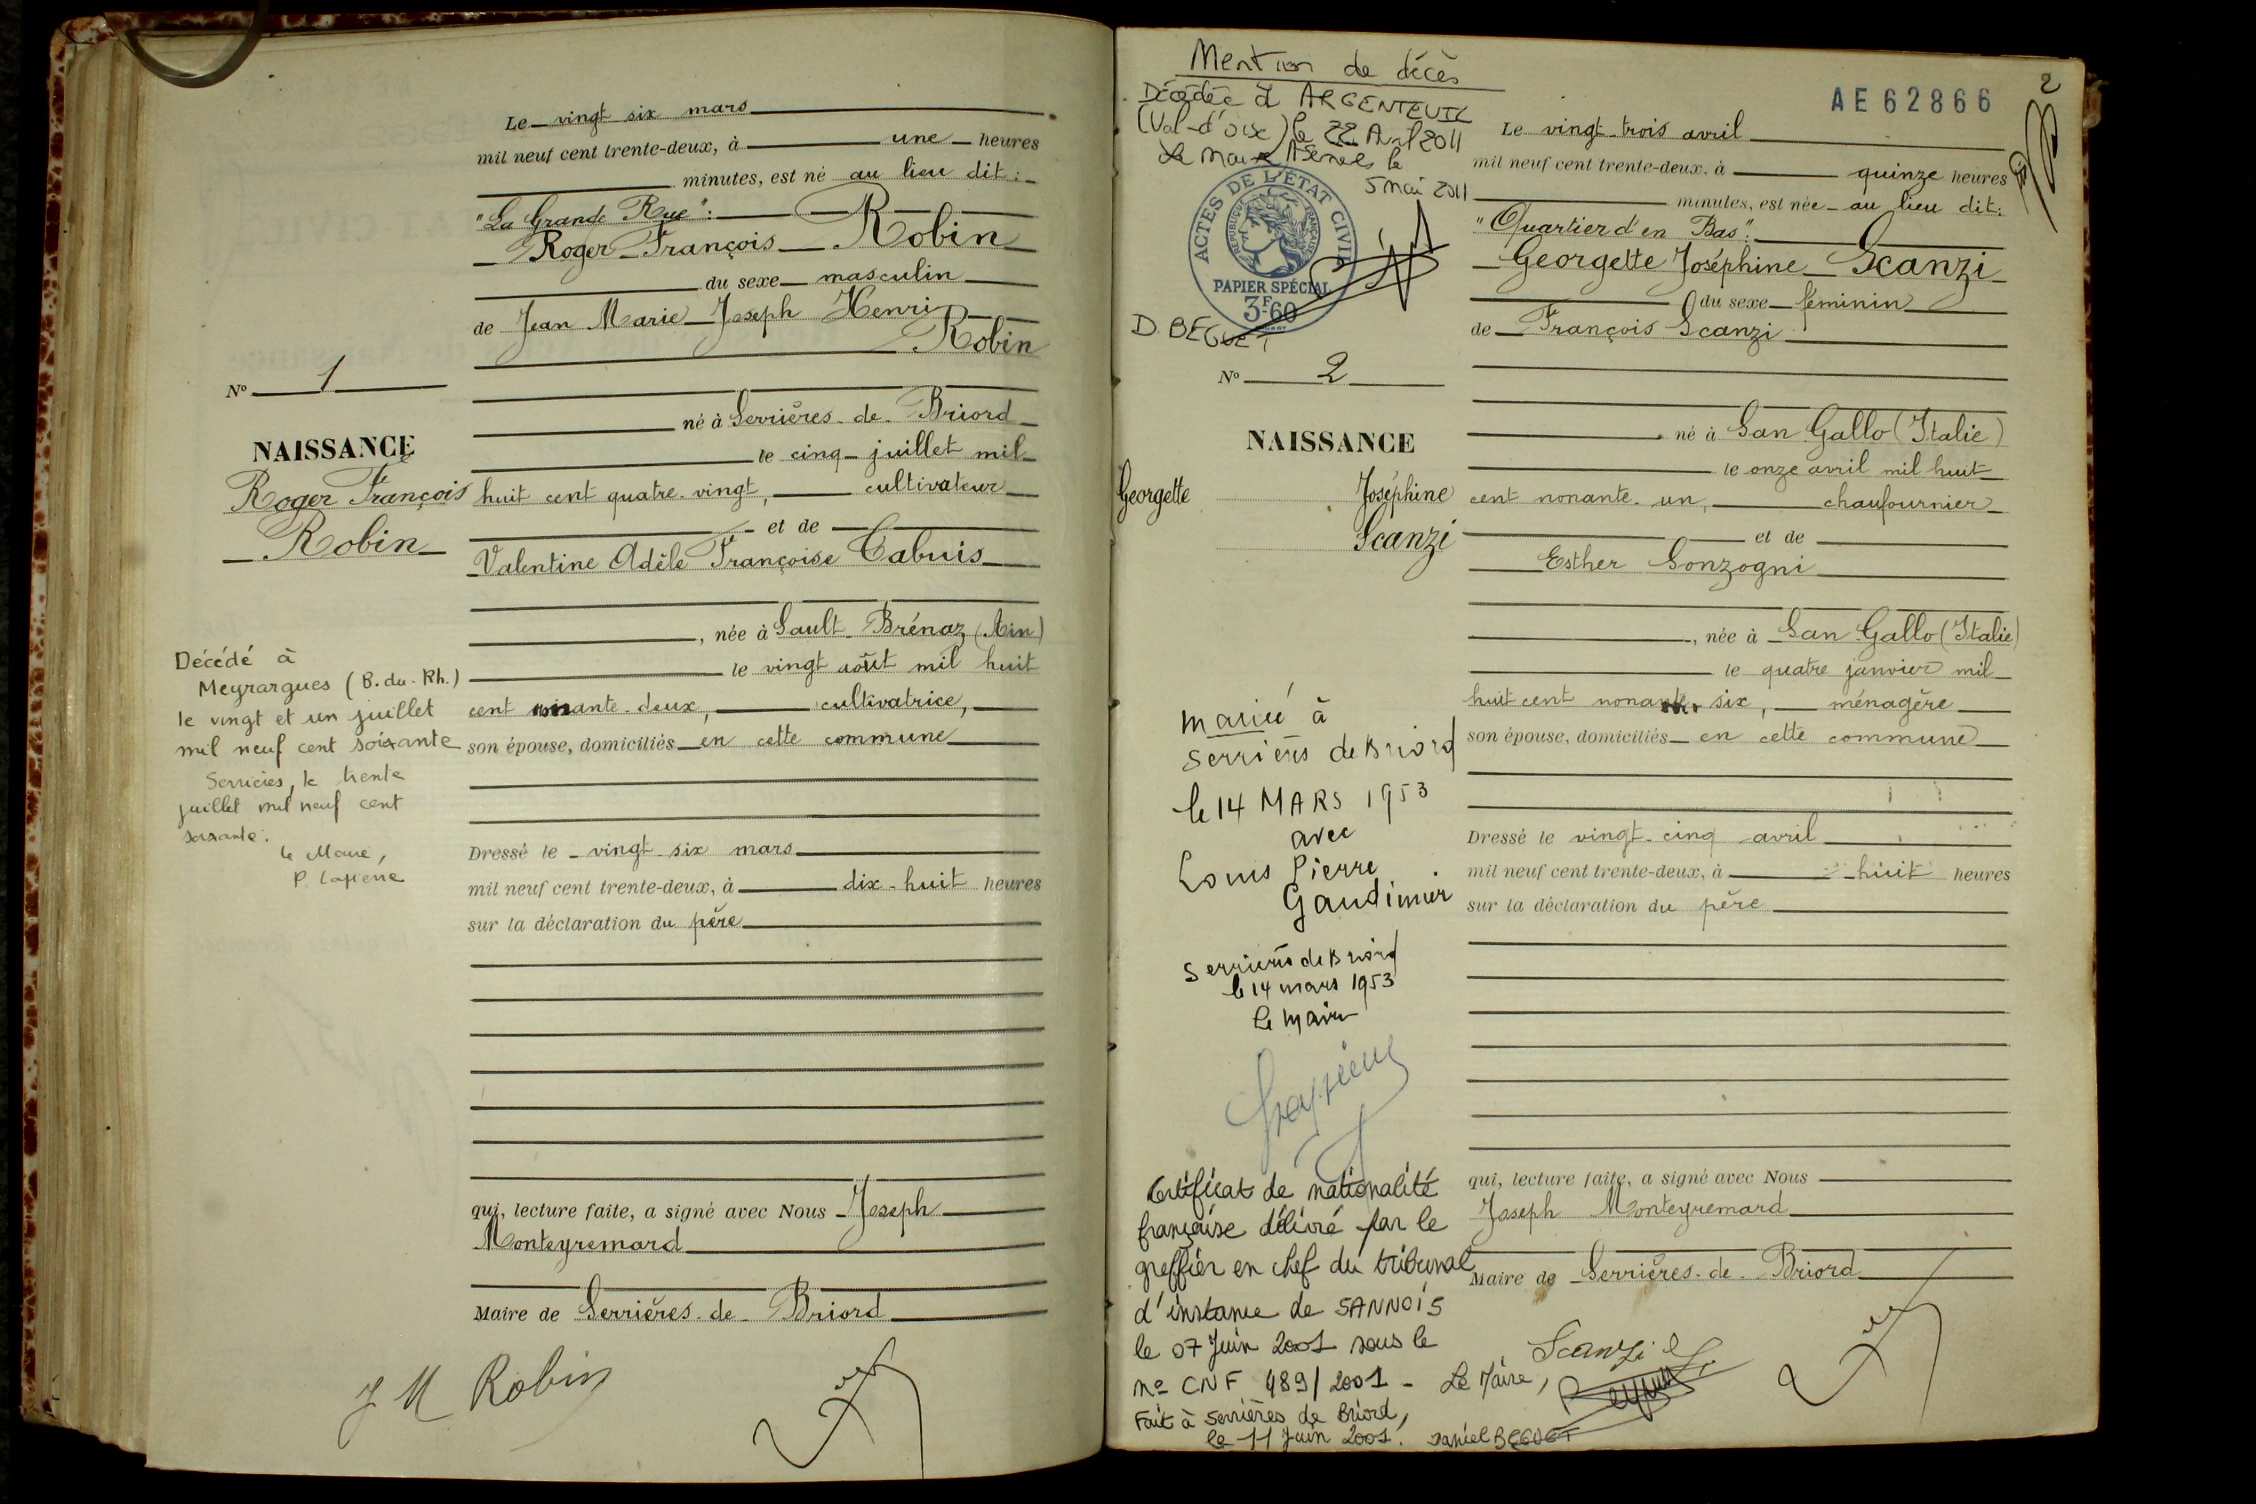 Le vingt six mars
mil neuf cent trente-deux, à une heures
minutes, est né au lieu dit:
"La Grande Rue":
Roger François Robin
du sexe masculin
de Jean Marie Joseph Henri
Robin
né à Serrières-de-Briord
le cinq juillet mil
huit cent quatre-vingt, cultivateur
et de
Valentine Adèle Françoise Cabuis
, née à Sault-Brénaz (Ain)
le vingt août mil huit
cent deux, cultivatrice,
son épouse, domiciliés en cette commune
Dressé le vingt six mars
mil neuf cent trente-deux, à dix-huit heures
sur la déclaration du père
qui, lecture faite, a signé avec Nous Joseph
Monteyremard
Maire de Serrières-de-Briord
J M Robin
No 1
NAISSANCE
Roger François
Robin
Décédé à
Meyrargues (B.du.Rh.)
le vingt et un juillet
mil neuf cent soixante
Serrières, le trente
juillet mil neuf cent
soixante.
Le Maire,
P. Lapierre
Mention de décès
Décédée à ARGENTEUIL
(Val-d'Oise) le 22 Avril 2011
le
5 mai 2011
ACTES DE L'ÉTAT CIVIL
RÉPUBLIQUE FRANÇAISE
PAPIER SPÉCIAL
3F60
D. BEGUET
No 2
NAISSANCE
Georgette Joséphine
Scanzi
mariée à
Serrières de Briord
le 14 MARS 1953
avec
Louis Pierre
Gaudimier
Serrières de Briord
le 14 mars 1953
Le Maire
Certificat de nationalité
française délivré par le
greffier en chef du tribunal
d'instance de SANNOIS
le 07 Juin 2001 sous le
No CNF 489/2001 - Le Maire,
Fait à Serrières de Briord,
le 11 Juin 2001. Daniel BEGUET
2
AE62866
Le vingt-trois avril
mil neuf cent trente-deux, à quinze heures
minutes, est née au lieu dit:
"Quartier d'en Bas":
Georgette Joséphine Scanzi
du sexe féminin
de François Scanzi
né à San Gallo (Italie)
le onze avril mil huit
cent nonante-un, chaufournier
et de
Esther Gonzogni
, née à San Gallo (Italie)
le quatre janvier mil
huit cent nonante six, ménagère
son épouse, domiciliés en cette commune
Dressé le vingt-cinq avril
mil neuf cent trente-deux, à huit heures
sur la déclaration du père
qui, lecture faite, a signé avec Nous
Joseph Monteyremard
Maire de Serrières-de-Briord
Scanzi